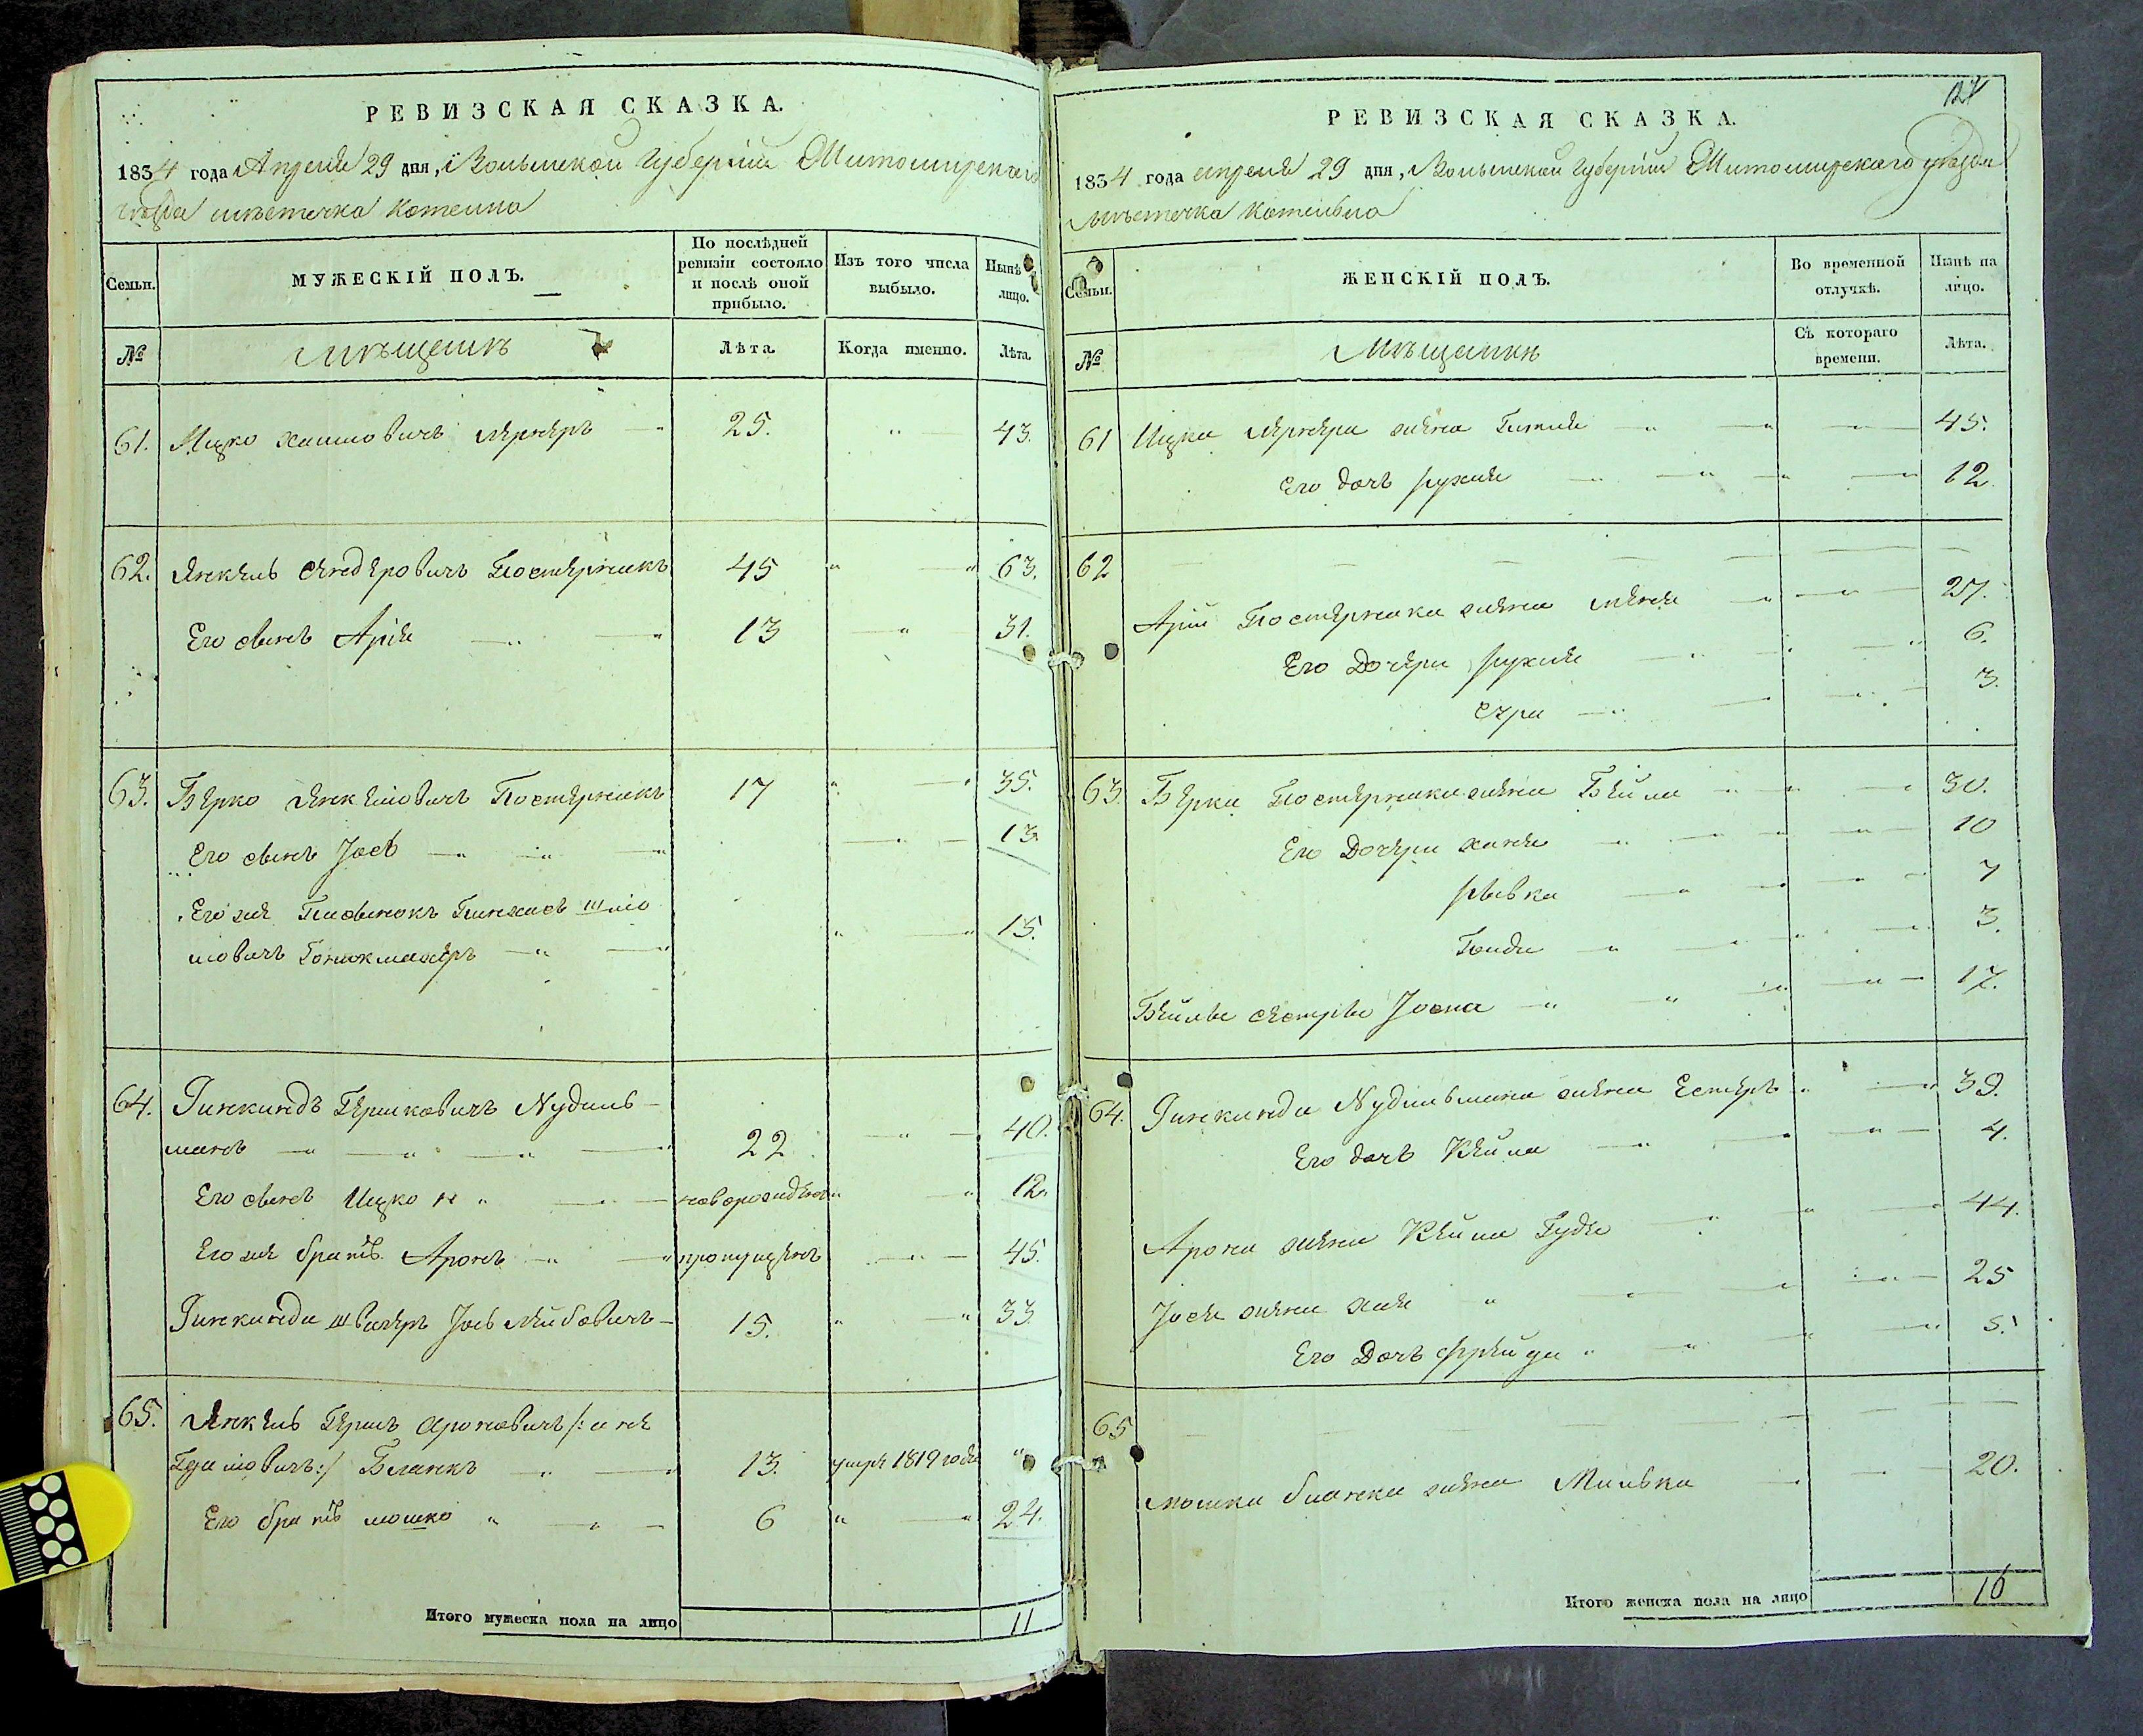 РЕВИЗСКАЯ СКАЗКА.
1834 года Апреля 29 дня, Волынской Губерніи Житомирскаго
уѣзда мѣстечка Котелна
Семьи.
МУЖЕСКІЙ ПОЛЪ.
По послѣдней ревизіи состояло и послѣ оной прибыло.
Изъ того числа выбыло.
Нынѣ лицо.
№
Мѣщанъ
Лѣта.
Когда именно.
Лѣта.
61. Ицко Хаимовичъ Лернеръ 25. 43.
62. Янкель Сендеровичъ Постернакъ 45 63.
Его сынъ Арія 13 31.
63. Берко Янкелиовичъ Постернакъ 17 35.
Его сынъ Іосъ 13
Его же Пасынокъ Пинхасъ Шліо
мовичъ 15.
64. Зинкиндъ Гершковичъ Нудель-
манъ 22 40.
Его сынъ Ицко новорожденъ 12
Его же братъ Аронъ пропущенъ 45.
Зинкинда Швагеръ Іось Лейбовичъ 15. 33
65. Янкель Гершъ Ароновичъ /: а не
Бланкъ 13. умре 1819 года
Его братъ Мошко 6 24.
Итого мужеска пола на лицо 11
12
РЕВИЗСКАЯ СКАЗКА.
1834 года апреля 29 дня, Волынской Губерніи Житомирскаго уѣзда
мѣстечка Котельна
Семьи.
ЖЕНСКІЙ ПОЛЪ.
Во временной отлучкѣ.
Нынѣ на лицо.
№
Мѣщанки
Съ котораго времени.
Лѣта.
61 Ицка Лернера жена Гитля 45.
Его дочь Рухля 12.
62
Арій Постернака жена Меня 27.
Его Дочери Рухля 6.
Сура 3.
63. Берки Постернака жена Бейла 30.
Его Дочери Ханя 10
Рывка 7
3.
Бейлы сестра Іосна 17.
64. Зинкинда Нудельмана жена Естеръ 39.
Его дочь Кейла 4.
Арона жена Кейла Гудя 44.
Іося жена Хая 25
Его Дочь Фрейда 5.
65
Мошки Бланка жена Милька 20.
Итого женска пола на лицо 16